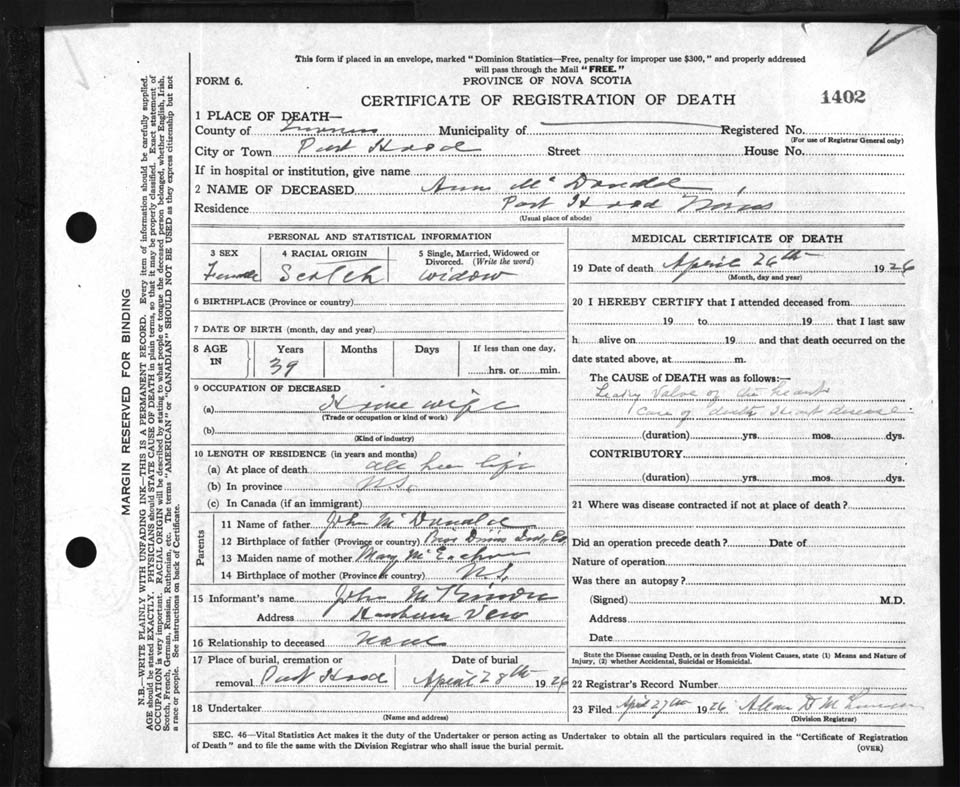 This form if placed in an envelope, marked "Dominion Statistics—Free, penalty for improper use $300," and properly addressed
will pass through the Mail "FREE."
FORM 6.
PROVINCE OF NOVA SCOTIA
CERTIFICATE OF REGISTRATION OF DEATH
1402
1 PLACE OF DEATH—
County of Inverness Municipality of Registered No.
(For use of Registrar General only)
City or Town Port Hood Street House No.
If in hospital or institution, give name
2 NAME OF DECEASED Ann McDonald
Residence Port Hood
(Usual place of abode)
PERSONAL AND STATISTICAL INFORMATION
3 SEX
Female
4 RACIAL ORIGIN
Scotch
5 Single, Married, Widowed or
Divorced. (Write the word)
widow
6 BIRTHPLACE (Province or country)
7 DATE OF BIRTH (month, day and year)
8 AGE
IN
Years
39
Months
Days
If less than one day,
hrs. or min.
9 OCCUPATION OF DECEASED
(a) House wife
(Trade or occupation or kind of work)
(b)
(Kind of industry)
10 LENGTH OF RESIDENCE (in years and months)
(a) At place of death all her life
(b) In province N.S.
(c) In Canada (if an immigrant)
Parents
11 Name of father John McDonald
12 Birthplace of father (Province or country)
13 Maiden name of mother Mary McEachern
14 Birthplace of mother (Province or country) N.S.
15 Informant's name John McKinnon
Address
16 Relationship to deceased none
17 Place of burial, cremation or
removal Port Hood
Date of burial
April 28th 1926
18 Undertaker
(Name and address)
MEDICAL CERTIFICATE OF DEATH
19 Date of death April 26th 1926
(Month, day and year)
20 I HEREBY CERTIFY that I attended deceased from
19 to 19 that I last saw
h alive on 19 and that death occurred on the
date stated above, at m.
The CAUSE of DEATH was as follows:—
Leaky Valve of the heart
Cause of death Heart disease
(duration) yrs. mos. dys.
CONTRIBUTORY
(duration) yrs. mos. dys.
21 Where was disease contracted if not at place of death?
Did an operation precede death? Date of
Nature of operation
Was there an autopsy?
(Signed) M.D.
Address
Date
State the Disease causing Death, or in death from Violent Causes, state (1) Means and Nature of
Injury, (2) whether Accidental, Suicidal or Homicidal.
22 Registrar's Record Number
23 Filed April 27th 1926
(Division Registrar)
SEC. 46—Vital Statistics Act makes it the duty of the Undertaker or person acting as Undertaker to obtain all the particulars required in the "Certificate of Registration
of Death" and to file the same with the Division Registrar who shall issue the burial permit.
(OVER)
MARGIN RESERVED FOR BINDING
N.B.—WRITE PLAINLY WITH UNFADING INK—THIS IS A PERMANENT RECORD. Every item of information should be carefully supplied.
AGE should be stated EXACTLY. PHYSICIANS should STATE CAUSE OF DEATH in plain terms, so that it may be properly classified. Exact statement of
OCCUPATION is very important. RACIAL ORIGIN will be described by stating to what people or tongue the deceased person belonged, whether English, Irish,
Scotch, French, German, Russian, Ruthenian, etc. The terms "AMERICAN" or "CANADIAN" SHOULD NOT BE USED as they express citizenship but not
a race or people. See instructions on back of Certificate.